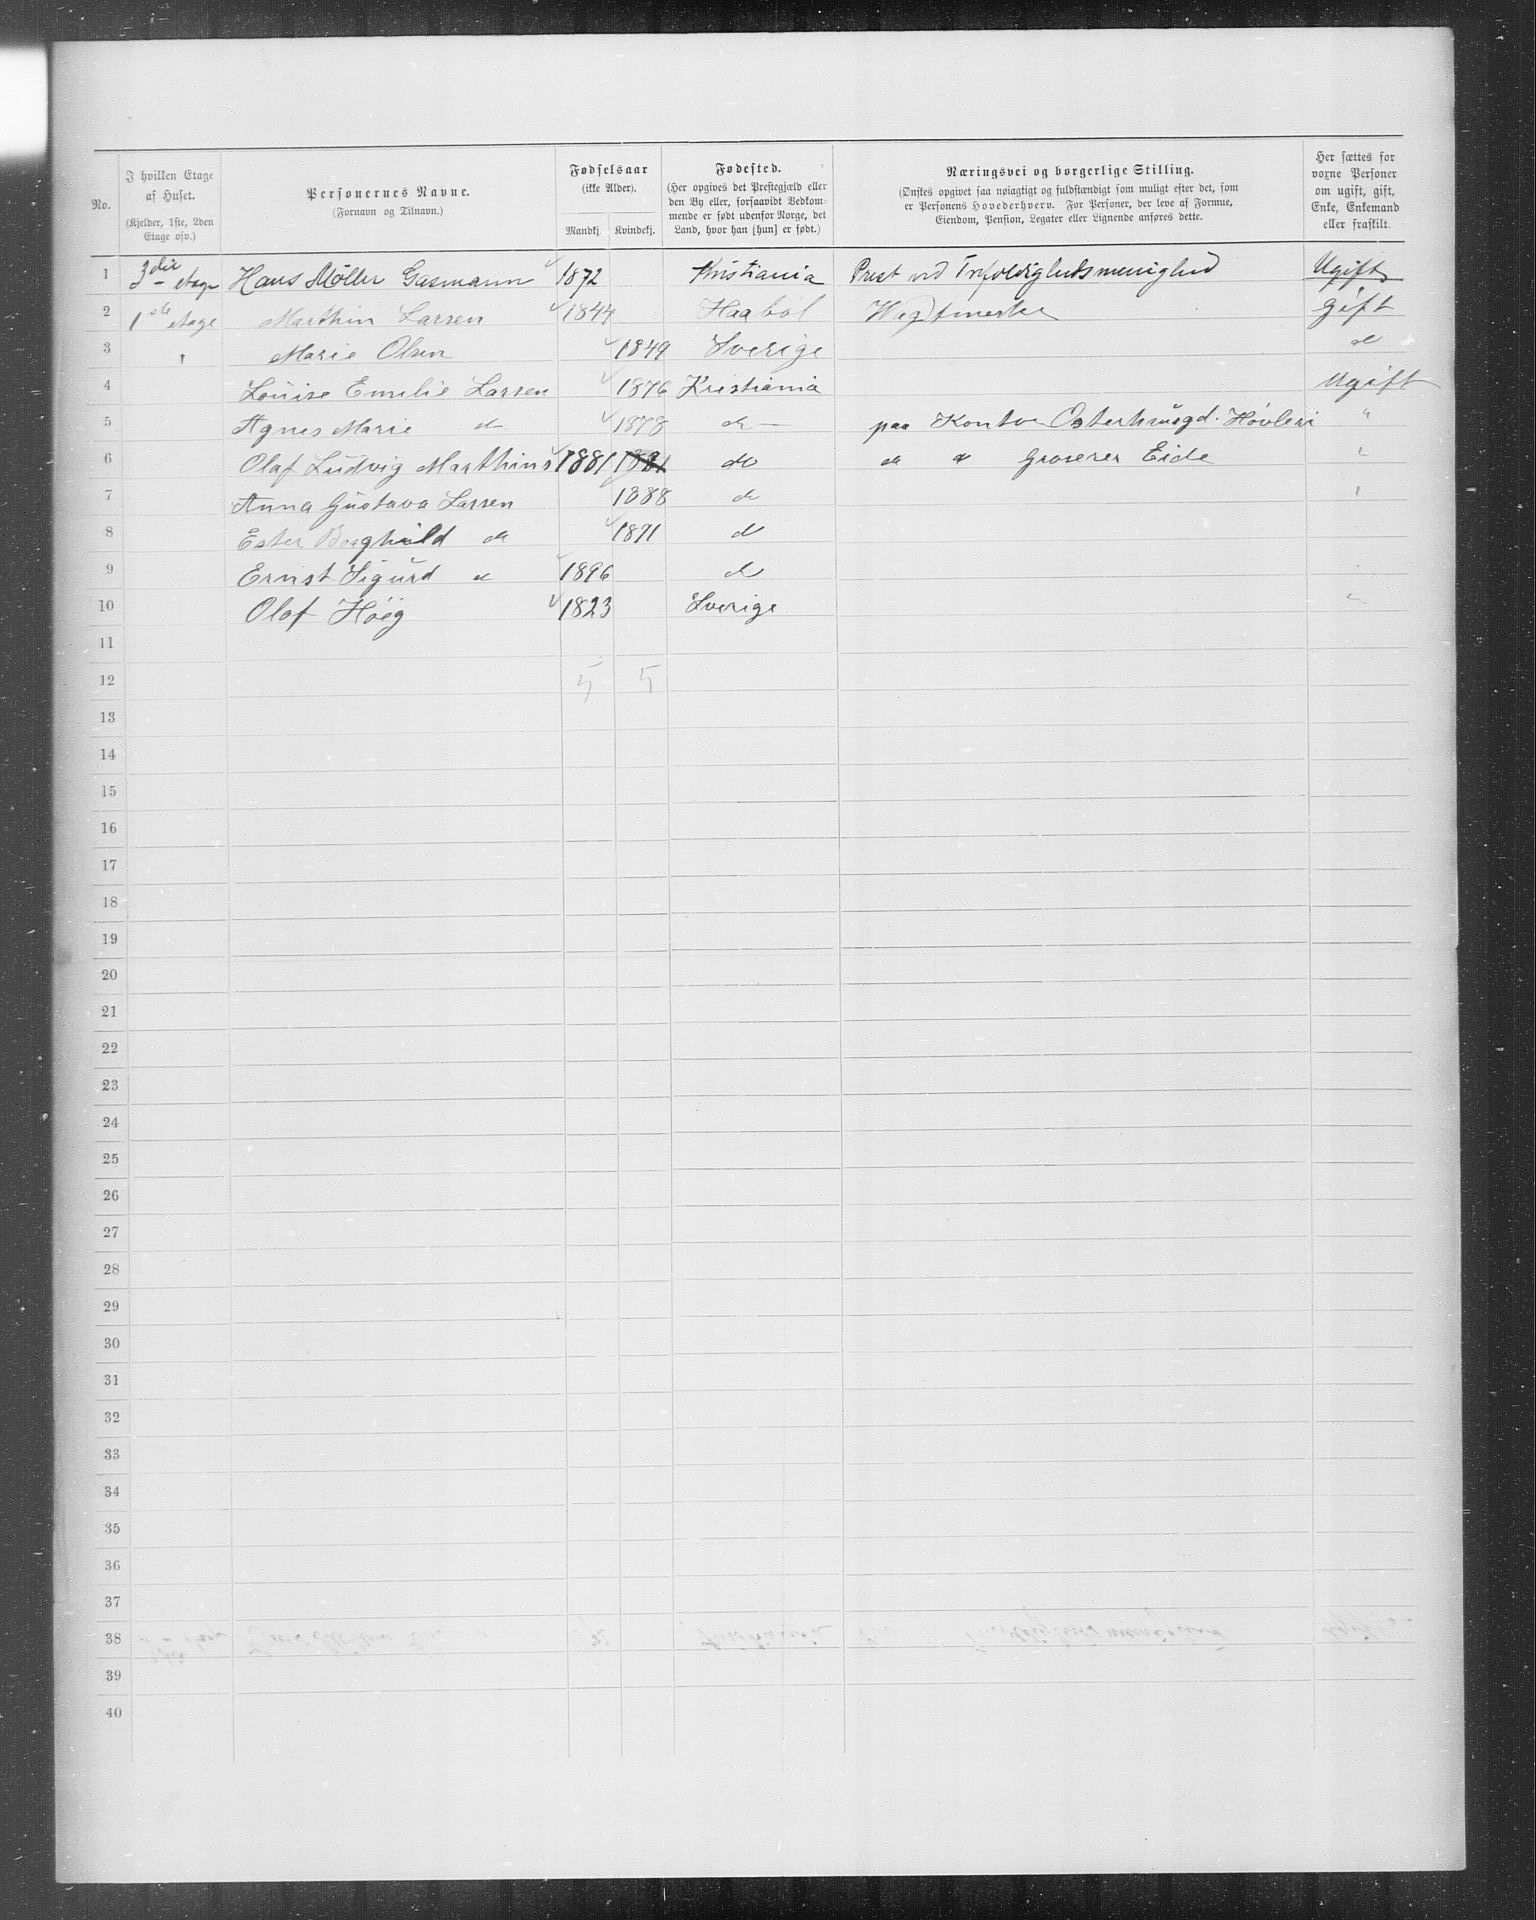 No.
I hvilken Etage af Huset. (Kjelder, 1ste, 2den Etage osv.)
Personernes Navne. (Fornavn og Tilnavn.)
Fødselsaar (ikke Alder). Mandkj. Kvindekj.
Fødested. (Her opgives det Præstegjæld eller den By eller, forsaavidt Vedkommende er født udenfor Norge, det Land, hvor han [hun] er født.)
Næringsvei og borgerlige Stilling. (Ønskes opgivet saa nøiagtigt og fuldstændigt som muligt efter det, som er Personens Hovederhverv. For Personer, der leve af Formue, Eiendom, Pension, Legater eller Lignende anføres dette.
Her sættes for voxne Personer om ugift, gift, Enke, Enkemand eller fraskilt.
1 3die etage Hans Møller Gasmann 1872 Kristiania Prest ved Trefoldighedsmenighed Ugift
2 1ste etage Marthin Larsen 1844 Haabøl Gift
3 " Marie Olsen 1849 Sverige do
4 Louise Emilie Larsen 1876 Kristiania Ugift
5 Agnes Marie do 1878 do — paa Kontor Høvleri "
6 Olaf Ludvig Marthins 1881 1881 do do do Grosserer Eide "
7 Anna Gustava Larsen 1888 do "
8 Ester Borghild do 1891 do
9 Ernst Sigurd do 1896 do
10 Olaf Höeg 1823 Sverige "
11
12 5 5
13
14
15
16
17
18
19
20
21
22
23
24
25
26
27
28
29
30
31
32
33
34
35
36
37
38
39
40